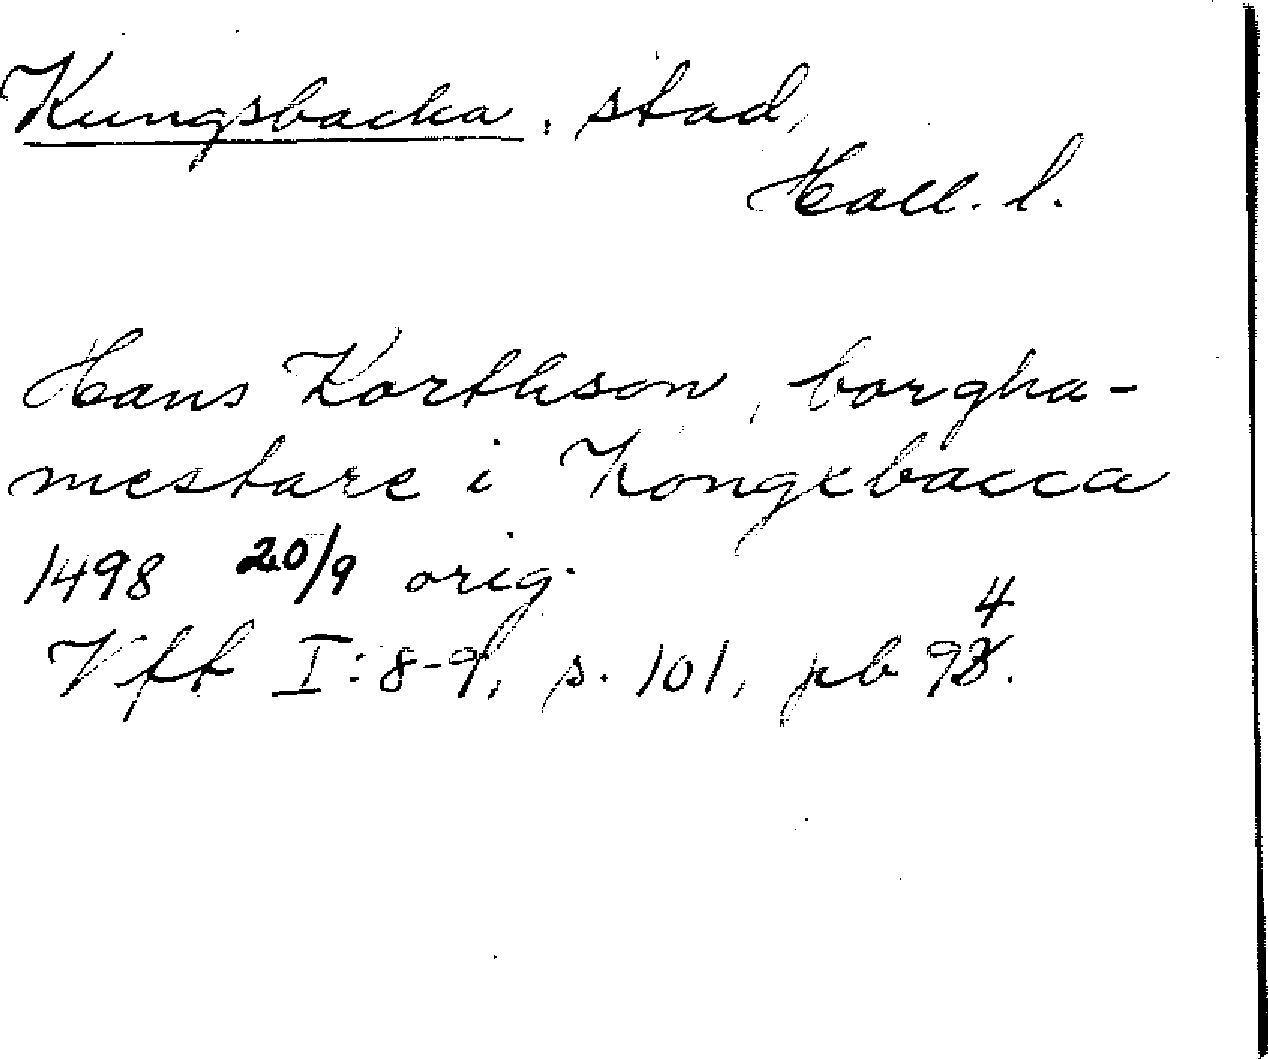 Kungsbacka, stad,
Hall. l.
Hans Korthson, borgha-
mestare i Kongxbacca
1498 20/9 orig.
Vff I: 8-9, s. 101, pb 94.